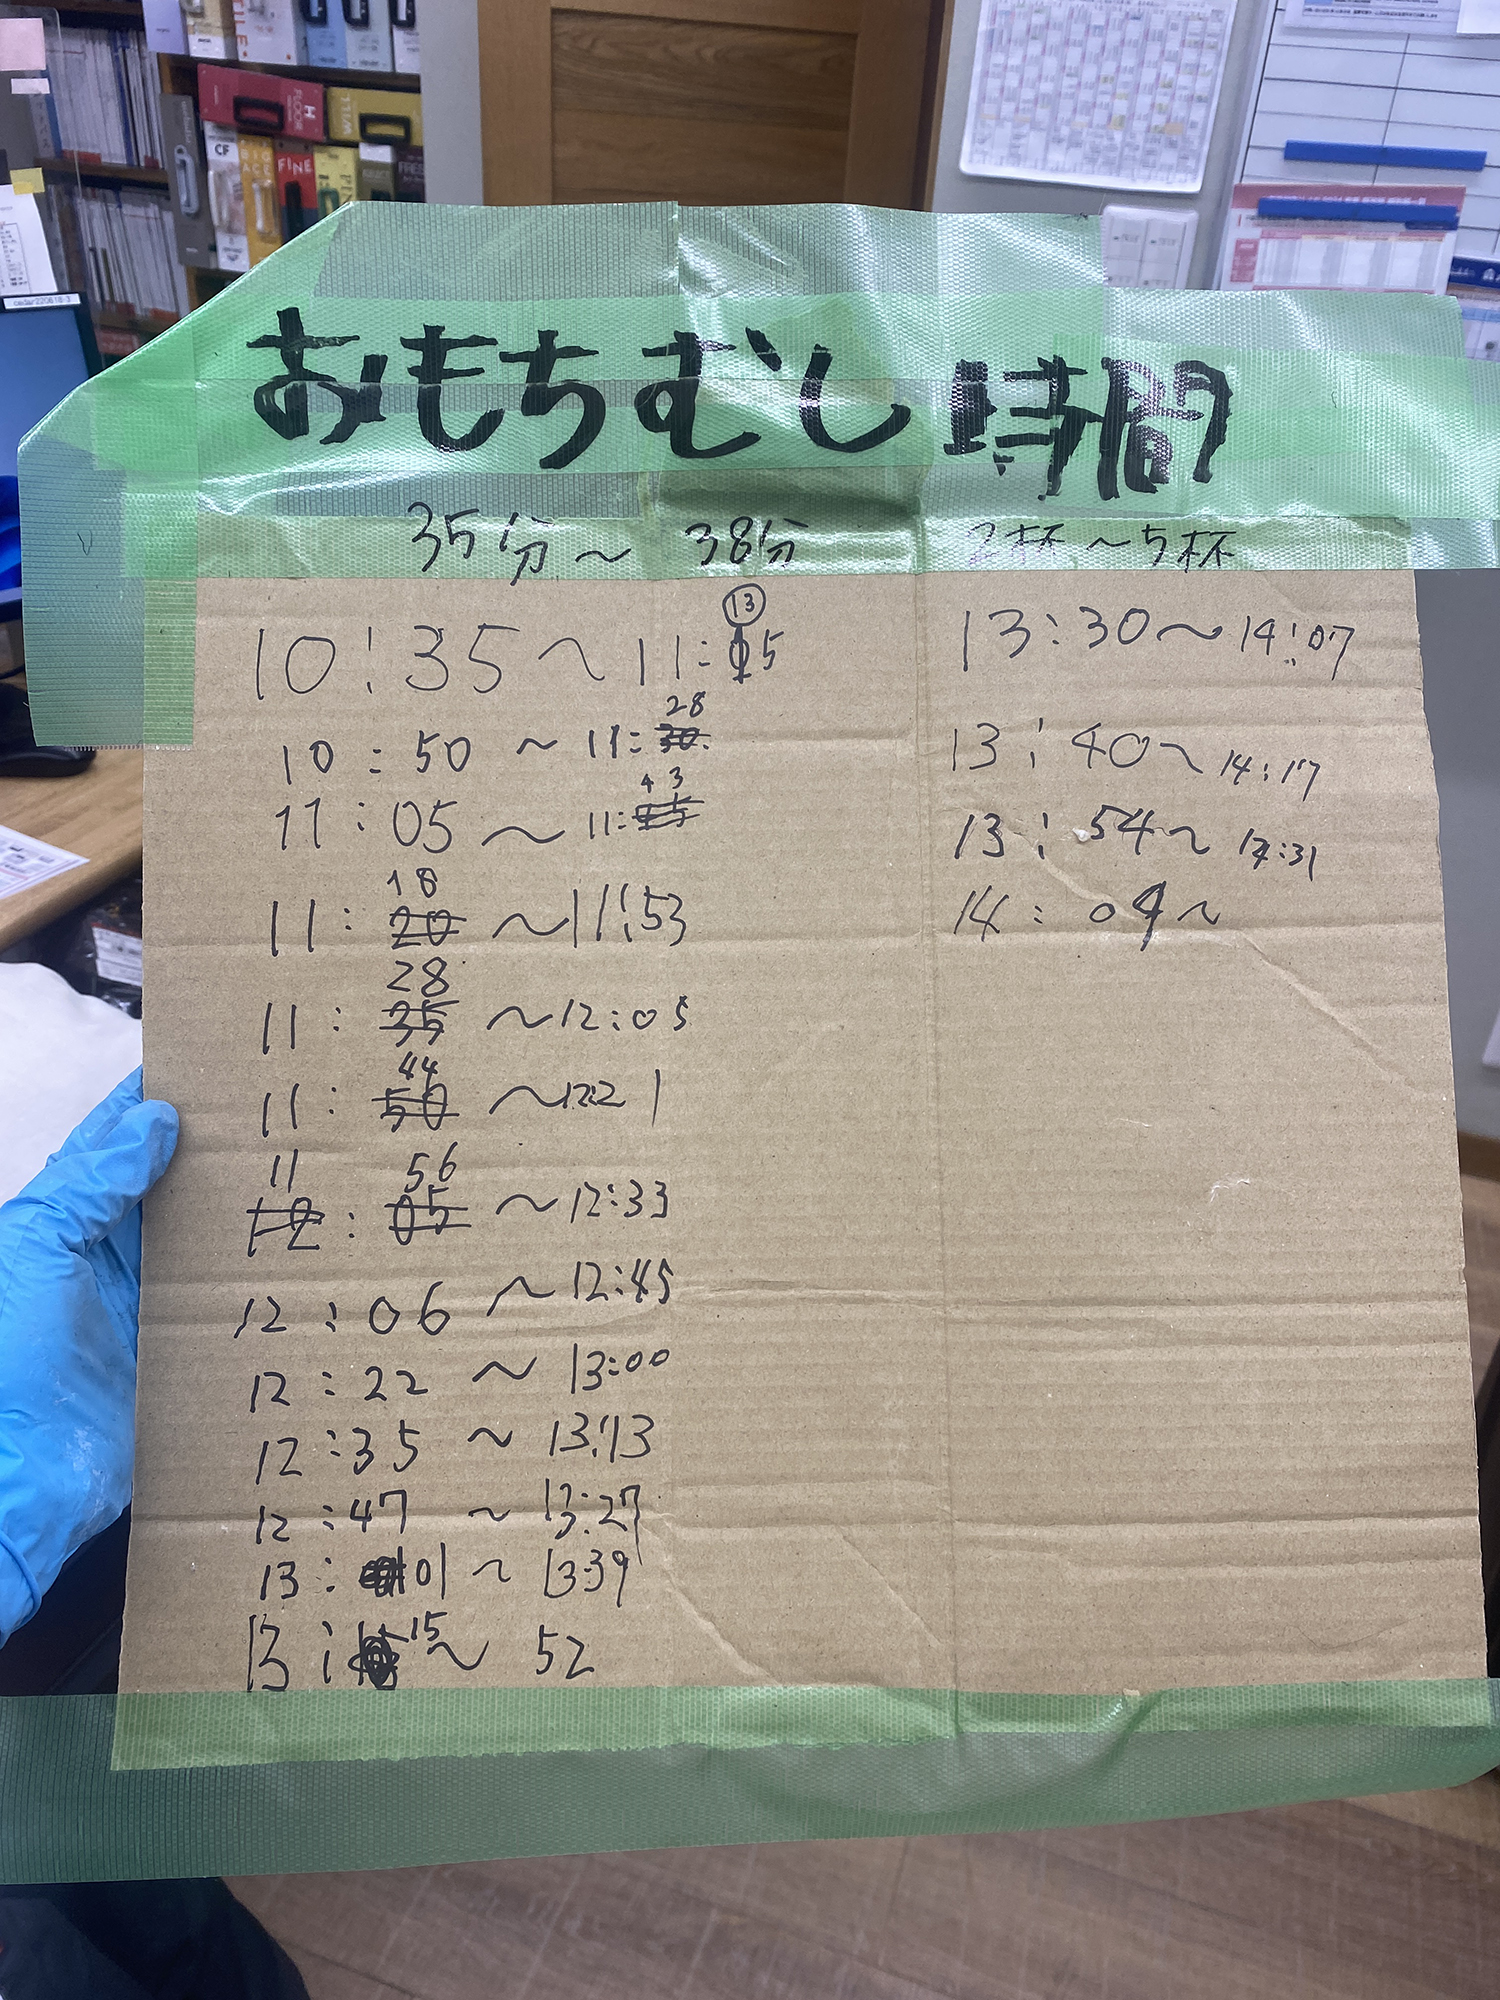 CF
FINE
H
FLOOR
WILL
FREE
おもちむし時間
35分～38分 2杯～5杯
13
10:35～11:15
28
10:50～11:30
43
11:05～11:
18
11:20～11:53
28
11:35～12:05
44
11:50～12:21
11 56
12:05～12:33
12:06～12:45
12:22～13:00
12:35～13:13
12:47～13:27
13:01～13:39
13:15～52
13:30～14:07
13:40～14:17
13:54～14:31
14:04～